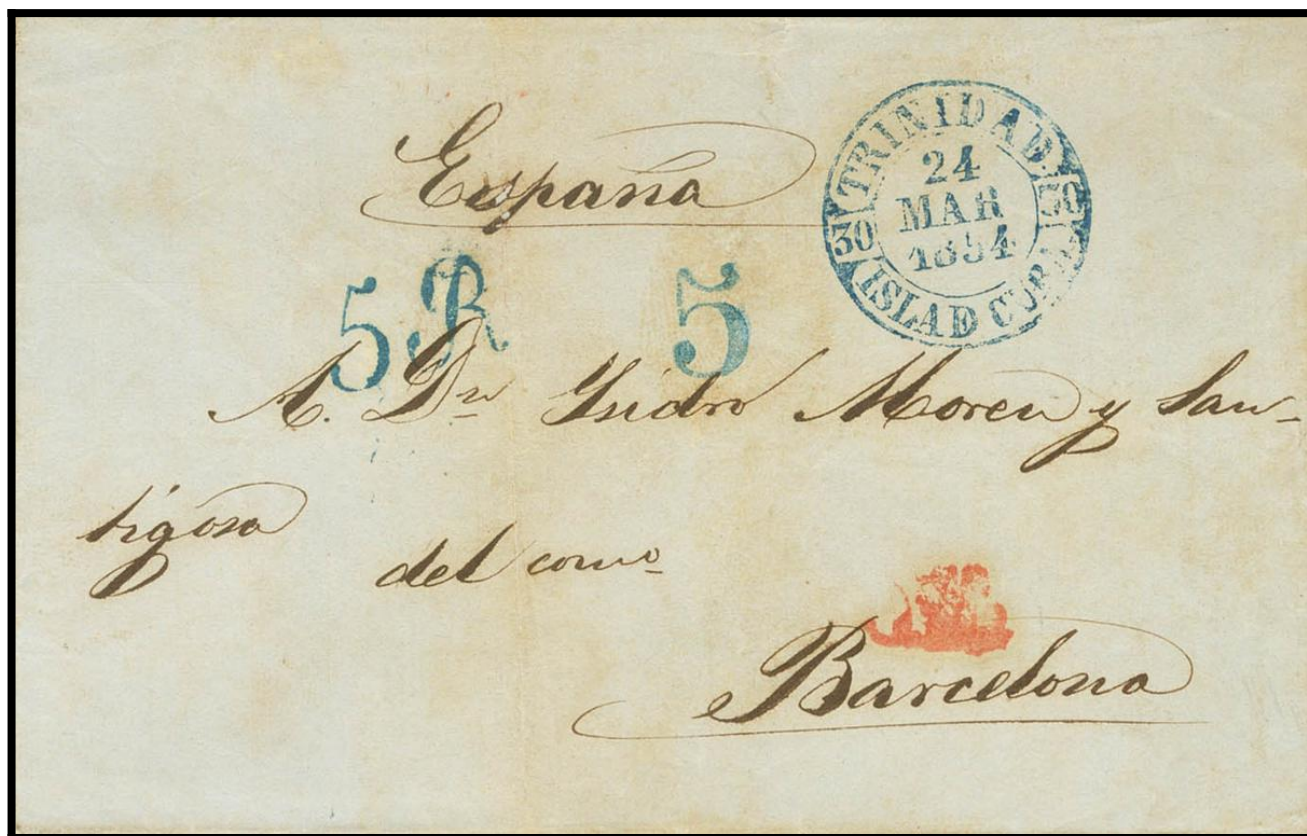 España
TRINIDAD.
24
MAR
1854
30 30
ISLA D CUBA
5R 5
A. Dn Isidro Moreu y San-
tigosa
del como
Barcelona